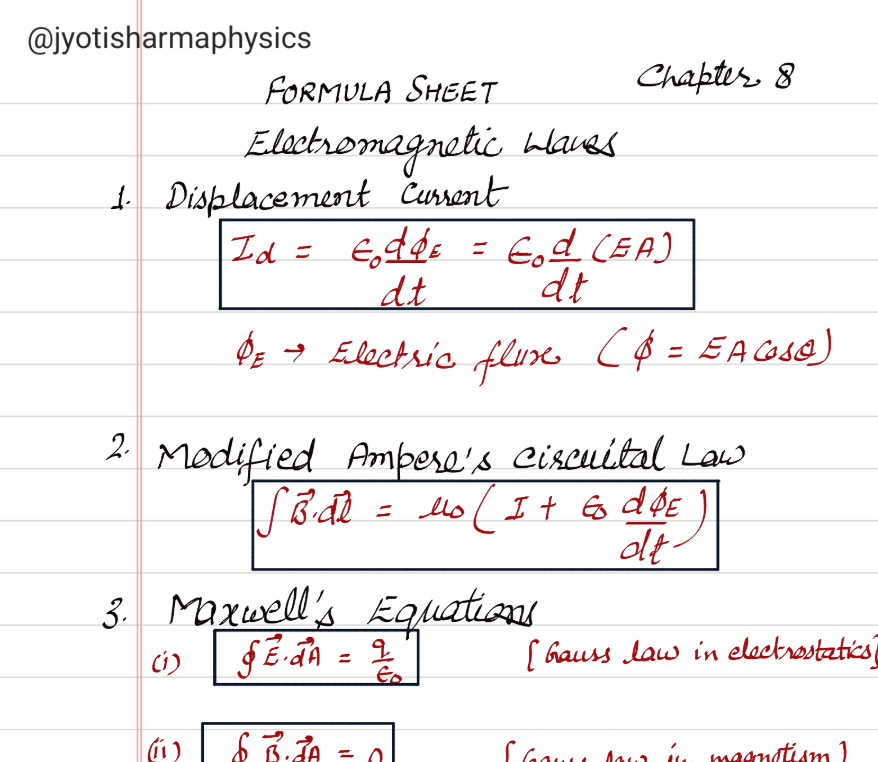 @jyotisharmaphysics
Chapter 8
FORMULA SHEET
Electromagnetic Waves
1. Displacement Current
Id = ϵ₀ dϕE/dt = ϵ₀ d/dt (EA)
ϕE → Electric flux (ϕ = EA Cosθ)
2. Modified Ampere's Circuital Law
∫B⃗.dl⃗ = μ₀ (I + ϵ₀ dϕE/dt)
3. Maxwell's Equations
(i) ∮E⃗.dA⃗ = q/ϵ₀ [Gauss law in electrostatics]
(ii) ∮B⃗.dA⃗ = 0 [Gauss law in magnetism]